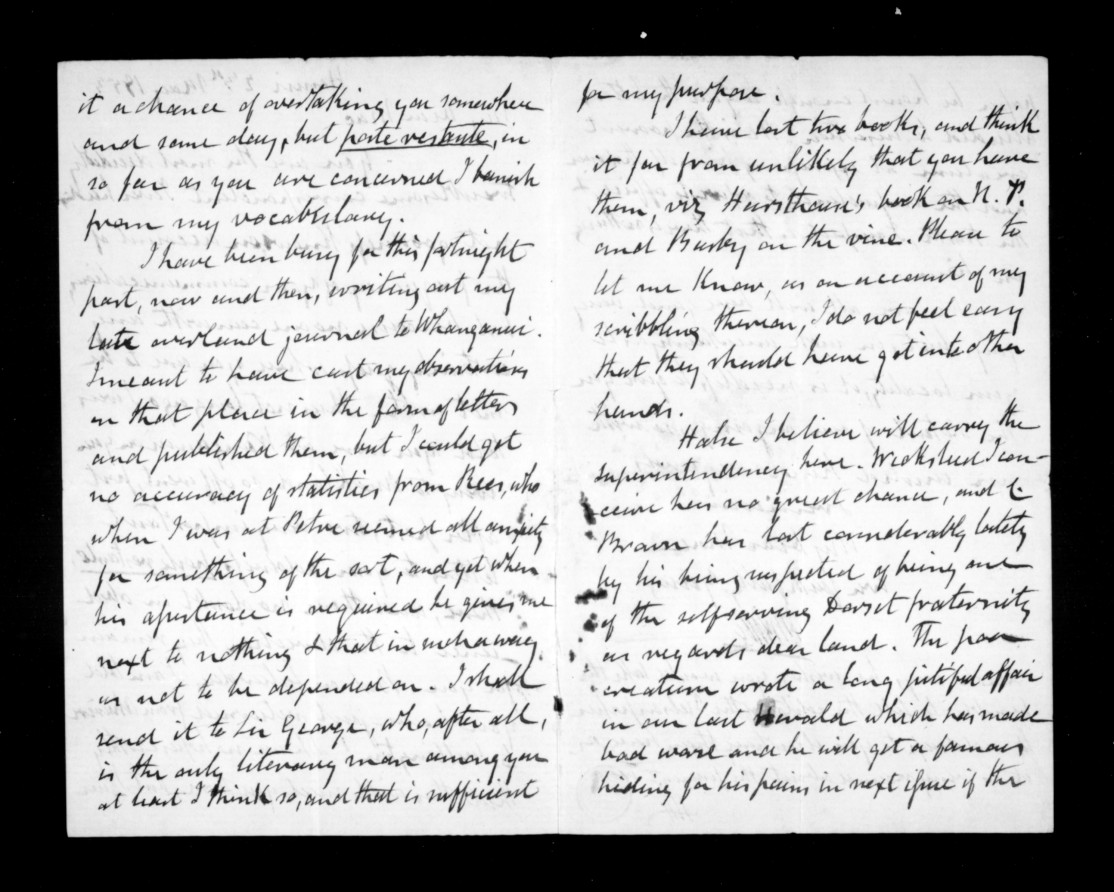 it a chance of overtaking you somewhere
and some day, but poste restante, in
so far as you are concerned I banish
from my vocabulary.
I have been busy for this fortnight
past, now and then, writing out my
late overland journal to Whanganui.
I meant to have cast my observations
on that place in the form of letters
and published them, but I could get
no accuracy of statistics from Rees, who
when I was at Petre seemed all anxiety
for something of the sort, and yet when
his assistance is required he gives me
next to nothing & that in such a way
as not to be depended on. I shall
send it to Sir George, who, after all,
is the only literary man among you
at least I think so, and that is sufficient
for my purpose.
I have lost two books, and think
it far from unlikely that you have
them, viz Hursthouse's book on N. P.
and Busby on the vine. Please to
let me know, as on account of my
scribbling thereon, I do not feel easy
that they should have got into other
hands.
Halse I believe will carry the
Superintendency here. Wicksteed I con-
ceive has no great chance, and C
Brown has lost considerably lately
by his being suspected of being one
of the self serving Dorset fraternity
as regards dear land. The poor
creature wrote a long pitiful affair
in our last Herald which has made
bad worse and he will get a famous
hiding for his pains in next issue if the